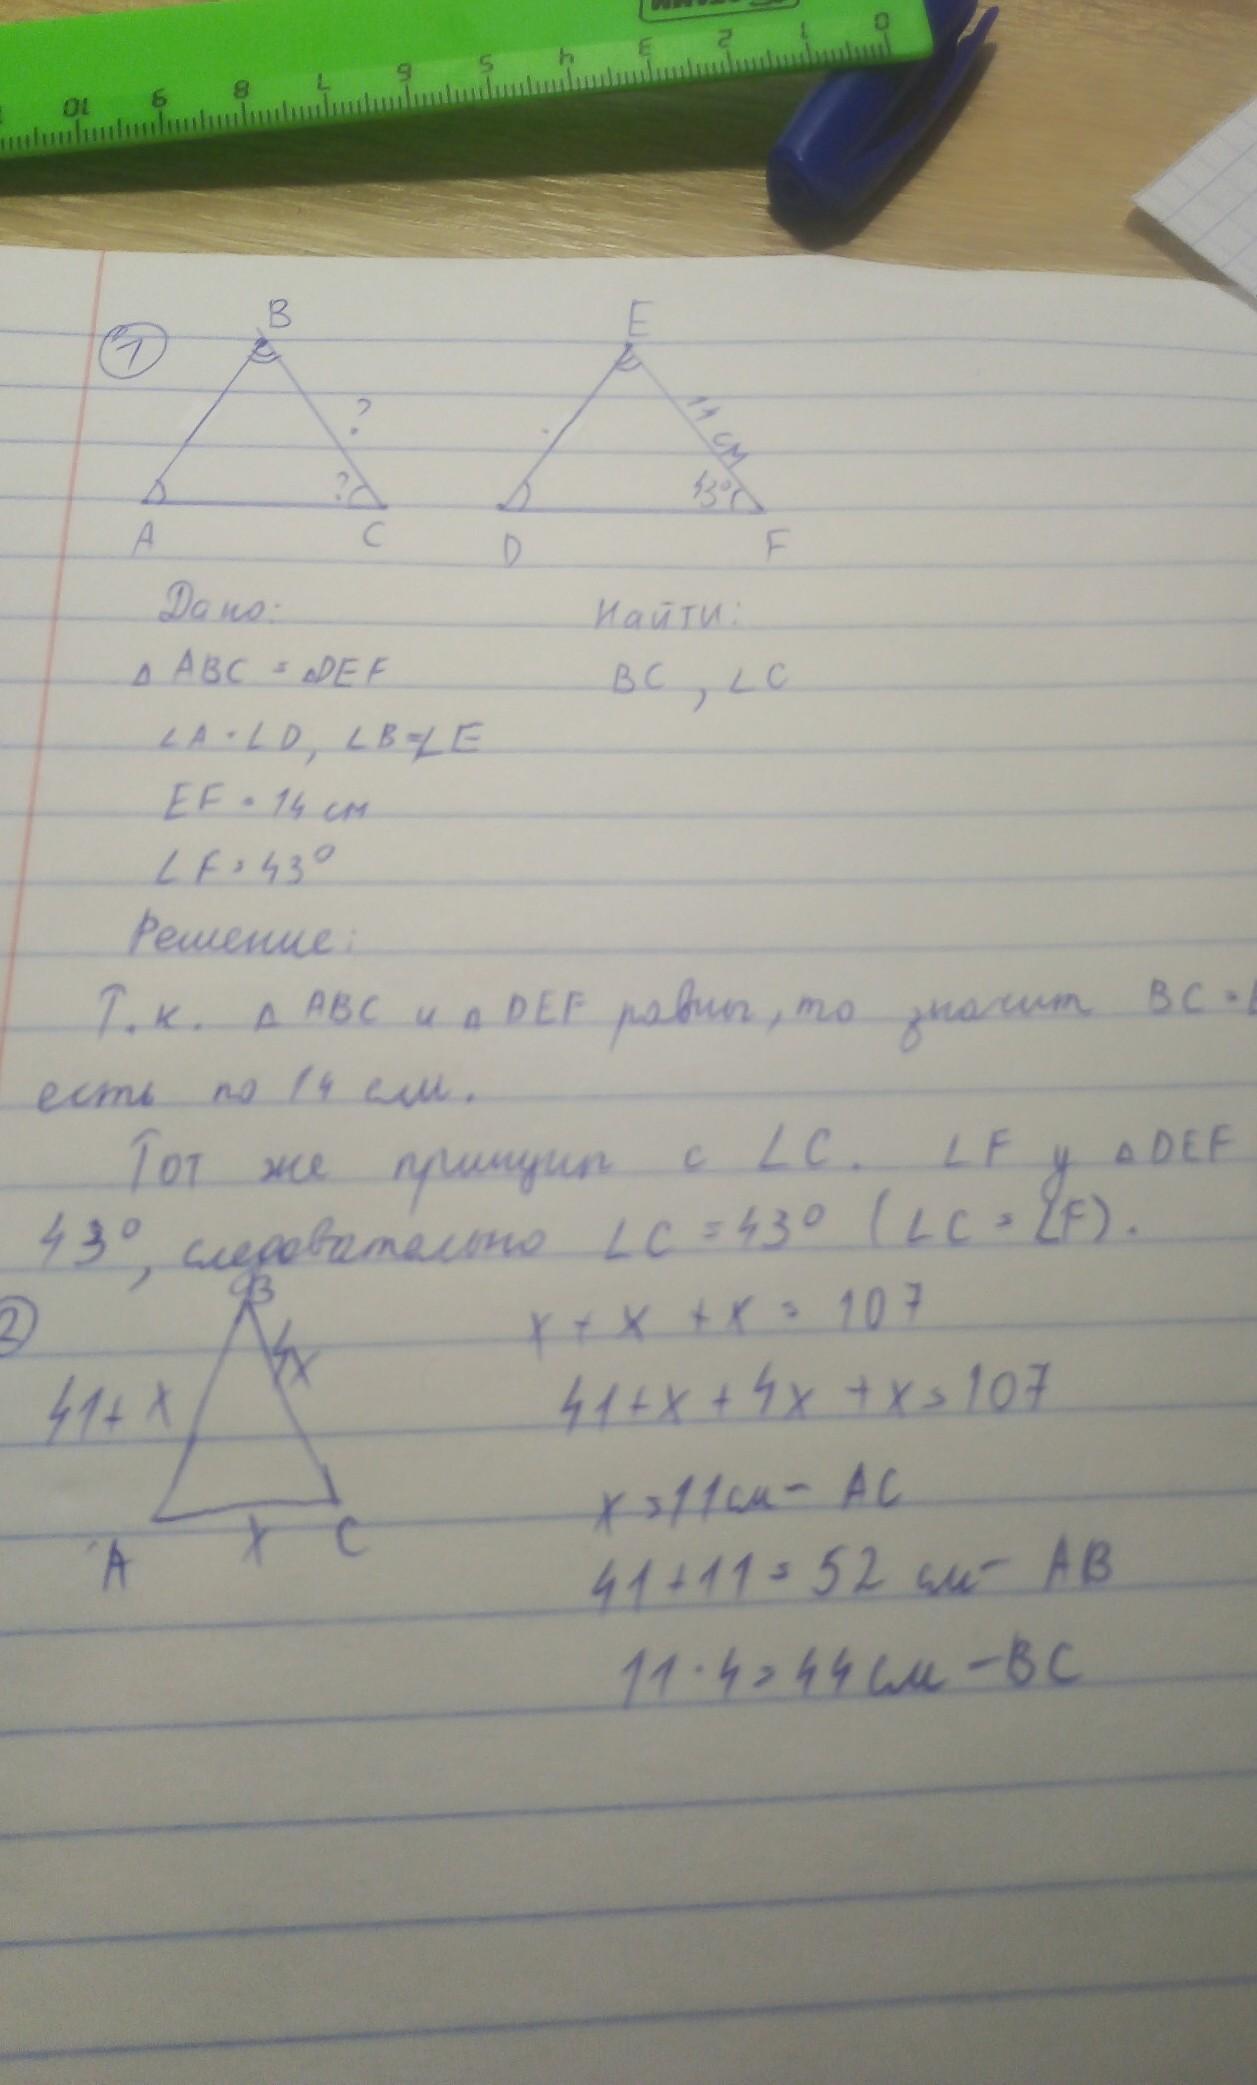 0 1 2 3 4 5 6 7 8 9 10
1
B
E
?
11 см
?
43°
A
C
D
F
Дано:
Найти:
△ ABC = △DEF
BC, ∠C
∠A = ∠D, ∠B = ∠E
EF = 14 см
∠F = 43°
Решение:
Т.к. △ ABC и △ DEF равны, то значит BC =
есть по 14 см.
Тот же принцип с ∠C. ∠F у △DEF
43°, следовательно ∠C = 43° (∠C = ∠F).
2
B
x + x + x = 107
4x
41 + x
41 + x + 4x + x = 107
x = 11 см - AC
A
x
C
41 + 11 = 52 см - AB
11 · 4 = 44 см - BC